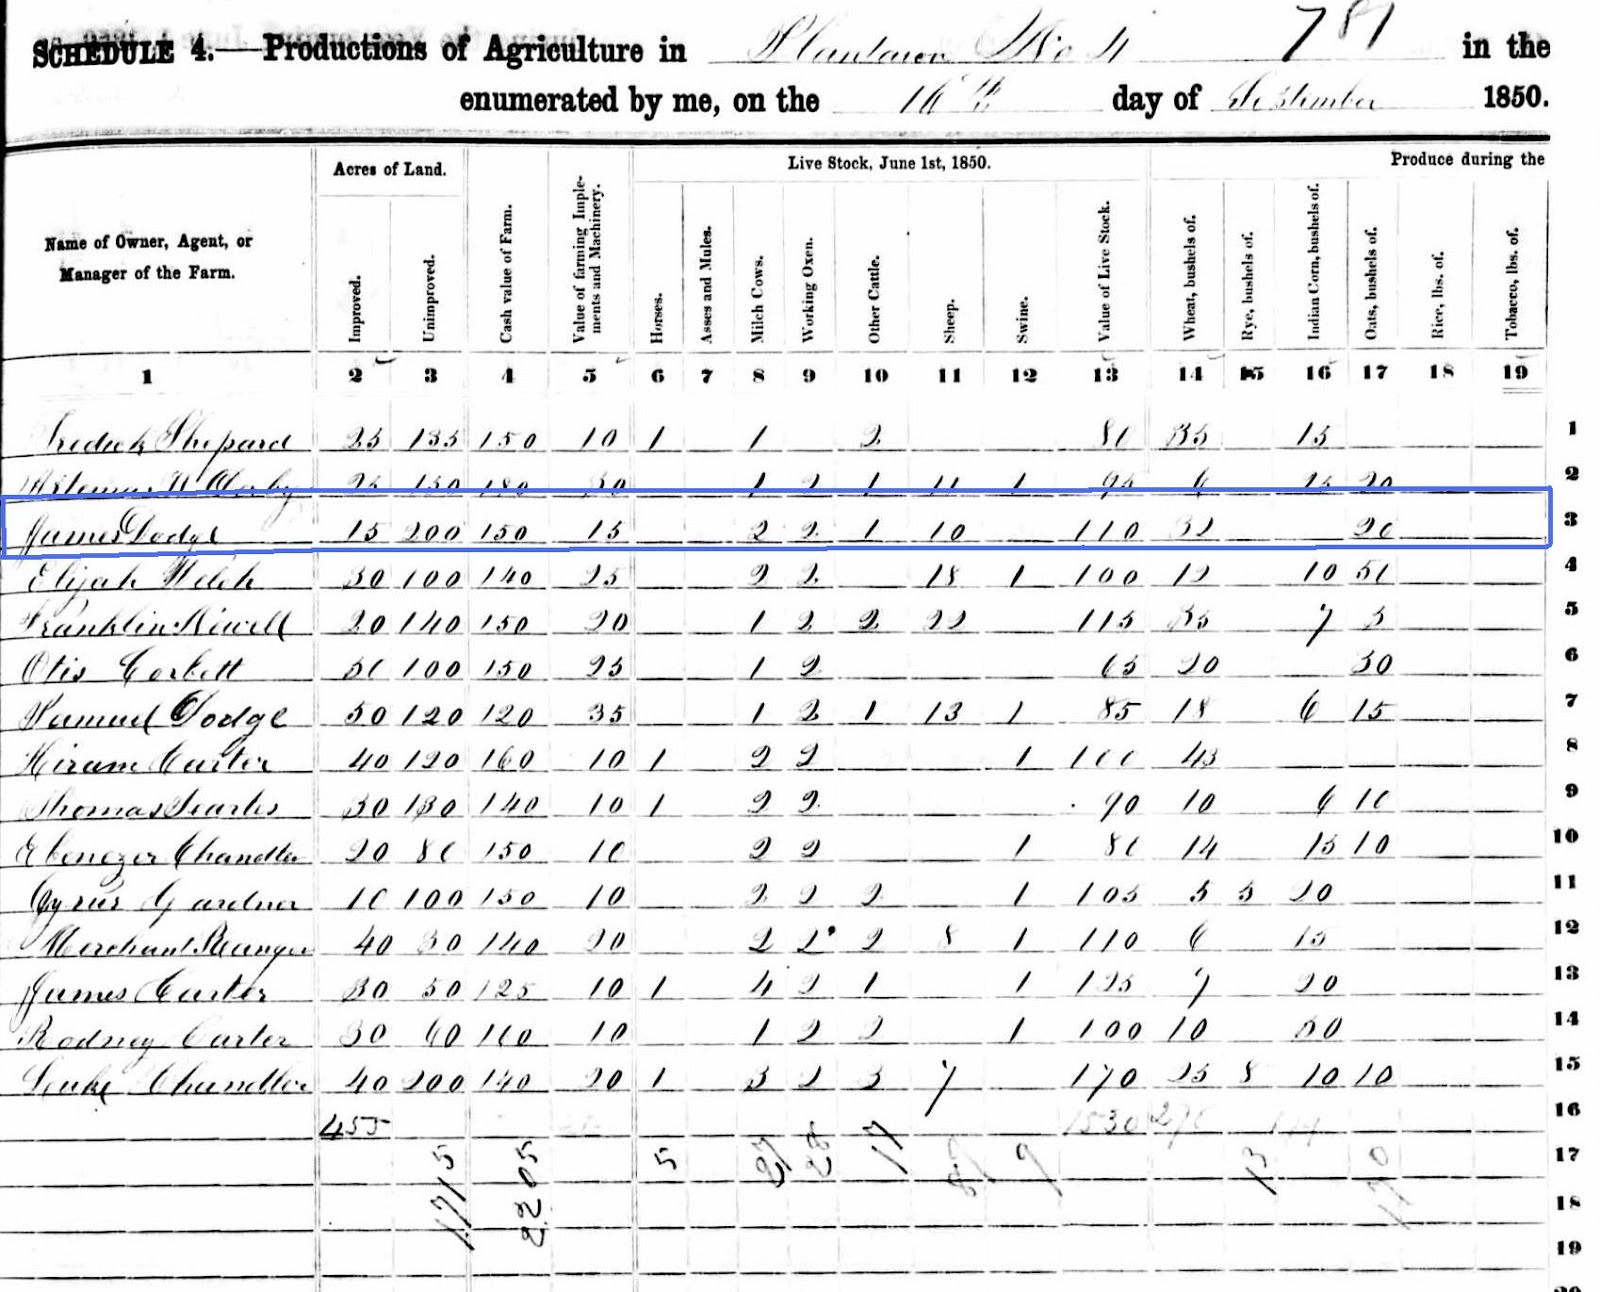 SCHEDULE 4.—Productions of Agriculture in Plantation No 4 781 in the
enumerated by me, on the 16th day of September 1850.
Acres of Land. Live Stock, June 1st, 1850. Produce during the
Name of Owner, Agent, or Manager of the Farm. Improved. Unimproved. Cash value of Farm. Value of farming Implements and Machinery. Horses. Asses and Mules. Milch Cows. Working Oxen. Other Cattle. Sheep. Swine. Value of Live Stock. Wheat, bushels of. Rye, bushels of. Indian Corn, bushels of. Oats, bushels of. Rice, lbs. of. Tobacco, lbs. of.
1 2 3 4 5 6 7 8 9 10 11 12 13 14 15 16 17 18 19
Fredick Shepard 25 135 150 10 1 1 2 80 35 15 1
25 150 180 30 1 2 1 11 1 95 6 15 20 2
James Dodge 15 200 150 15 2 2 1 10 110 32 20 3
Elijah Welch 30 100 140 25 2 2 18 1 100 12 10 50 4
Franklin 20 140 150 20 1 2 2 22 115 35 7 3 5
Otis Corbett 50 100 150 25 1 2 65 20 30 6
Samuel Dodge 50 120 120 35 1 2 1 13 1 85 18 6 15 7
Hiram Carter 40 120 160 10 1 2 2 1 100 43 8
Thomas Searles 30 130 140 10 1 2 2 90 10 6 10 9
Ebenezer Chandler 20 80 150 10 2 2 1 80 14 15 10 10
Cyrus Gardner 10 100 150 10 2 2 2 1 105 5 5 20 11
Merchant 40 30 140 20 2 2 2 8 1 110 6 15 12
James Carter 30 50 125 10 1 4 2 1 1 125 7 20 13
Rodney Carter 30 60 110 10 1 2 2 1 100 10 30 14
Luke Chandler 40 200 140 20 1 3 2 3 7 170 25 8 10 10 15
455 1530 276 16
1715 2205 5 27 28 17 9 13 170 17
18
19